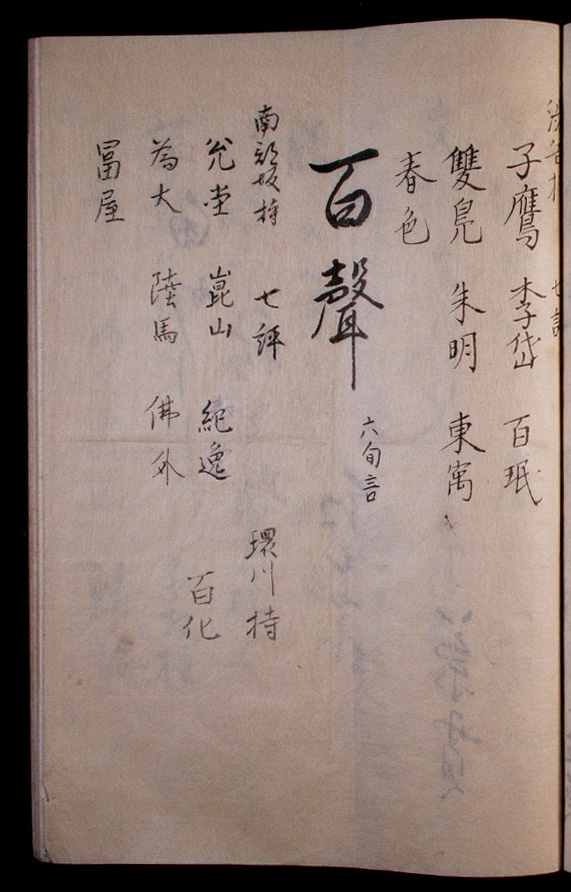 子鷹 李岱 百珉
雙鳧 朱明 東寓
春色
百聲 六旬言
南部坂持 七評 環川持
允堂 崑山 紀逸 百化
為大 陸馬 佛外
冨屋